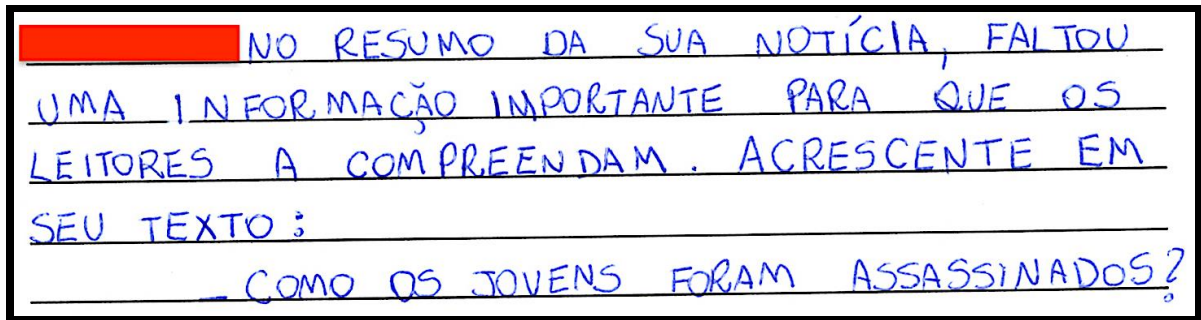 NO RESUMO DA SUA NOTÍCIA, FALTOU
UMA INFORMAÇÃO IMPORTANTE PARA QUE OS
LEITORES A COMPREENDAM. ACRESCENTE EM
SEU TEXTO:
– COMO OS JOVENS FORAM ASSASSINADOS?